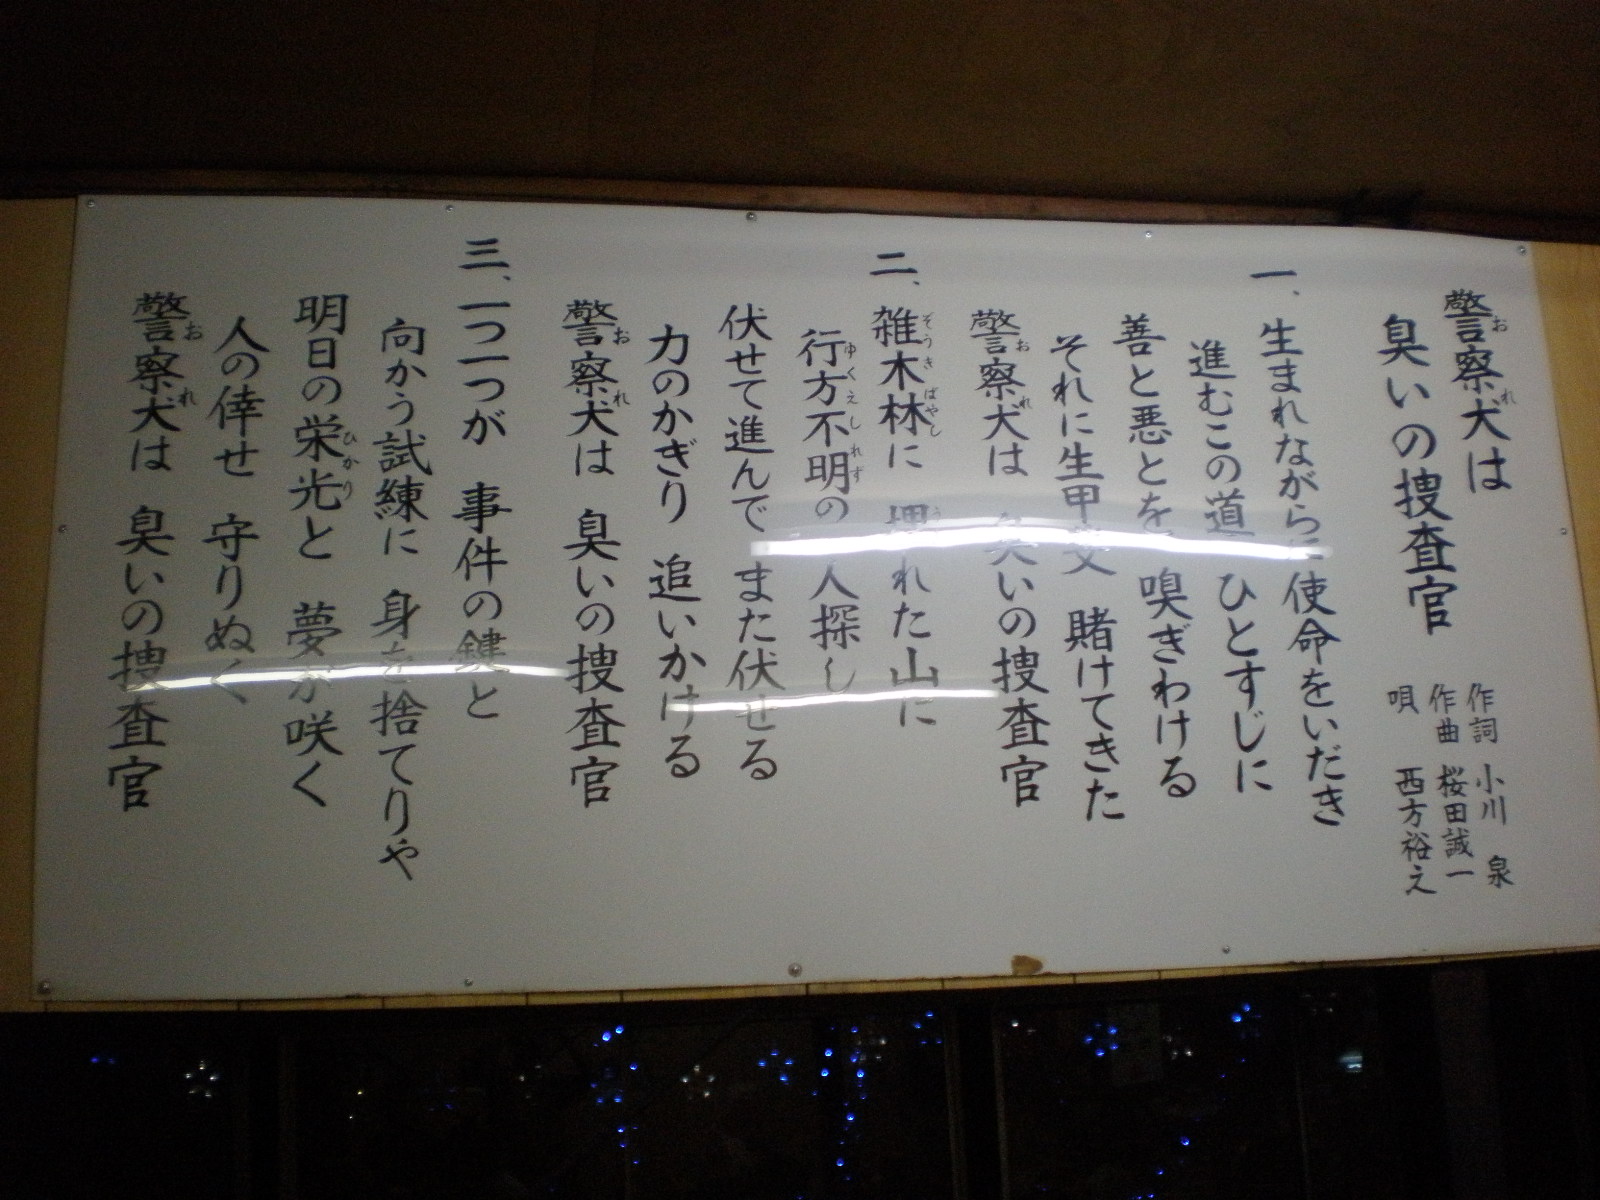 警察犬は
臭いの捜査官
作詞 小川 泉
作曲 桜田誠一
唄 西方裕之
一、生まれながらに使命をいだき
進むこの道 ひとすじに
善と悪とを 嗅ぎわける
それに生甲斐 賭けてきた
警察犬は 臭いの捜査官
二、雑木林に 埋れた山に
行方不明の 人探し
伏せて進んで また伏せる
力のかぎり 追いかける
警察犬は 臭いの捜査官
三、一つ一つが 事件の鍵と
向かう試練に 身を捨てりゃ
明日の栄光と 夢が咲く
人の倖せ 守りぬく
警察犬は 臭いの捜査官